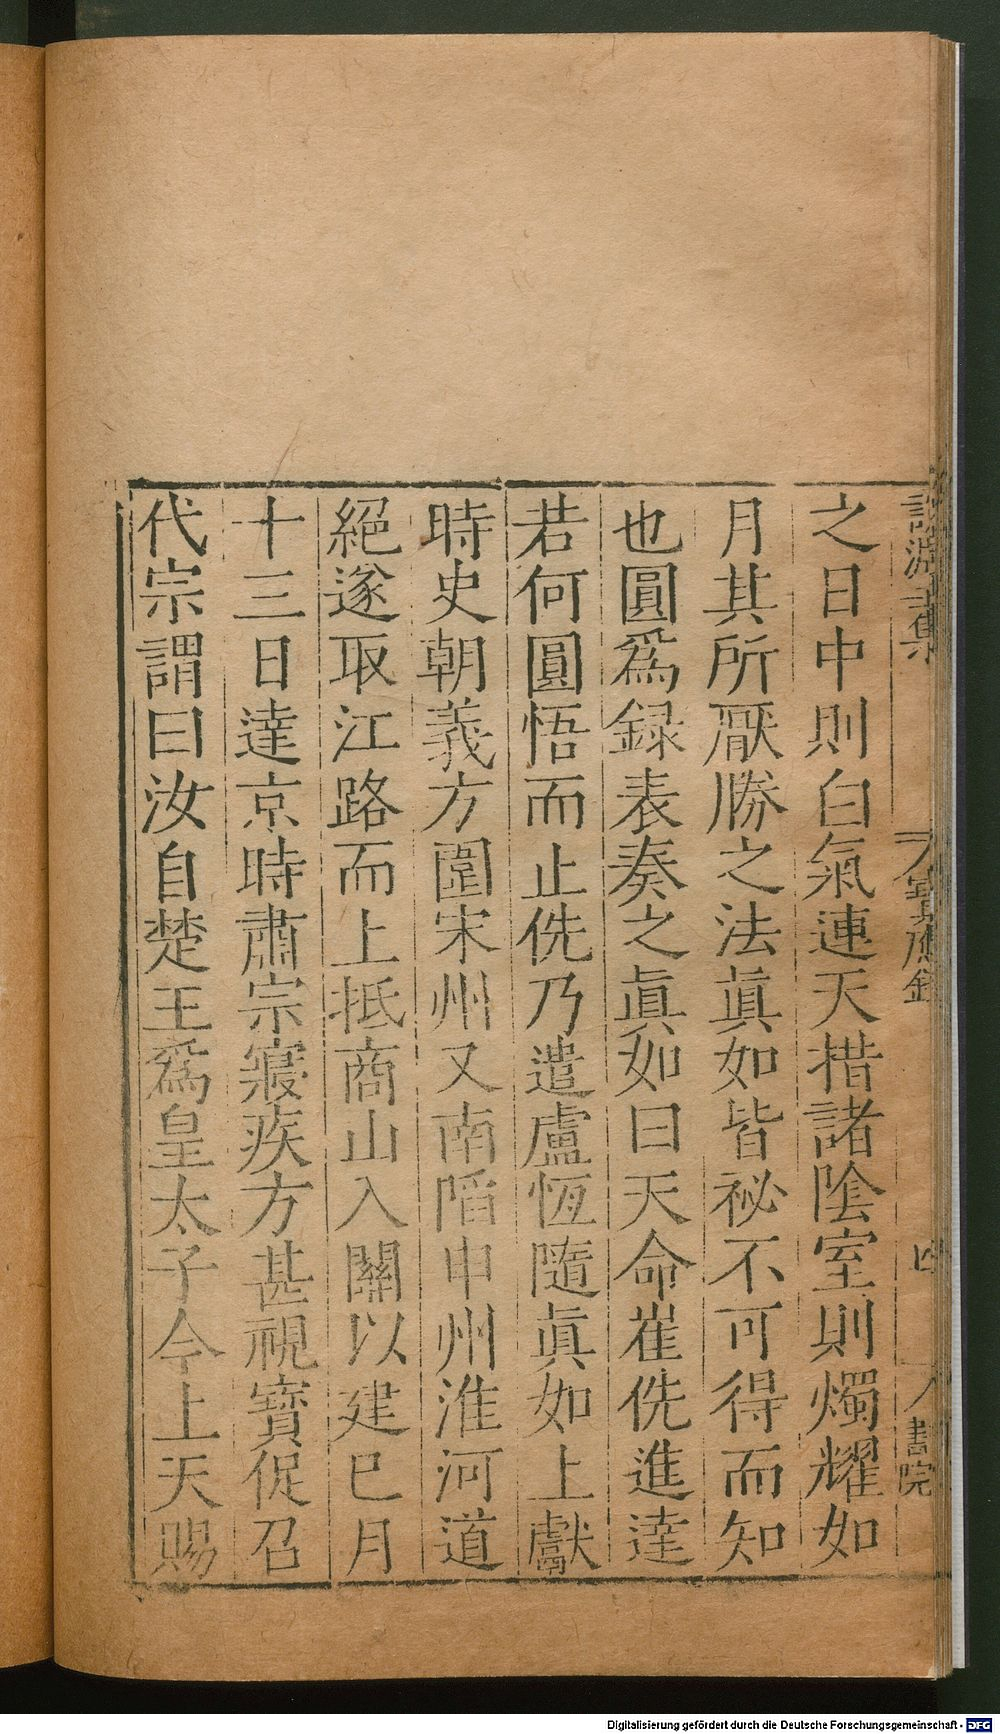 說淵壬集
寶應錄
四
書院
之日中則白氣連天措諸陰室則燭耀如
月其所厭勝之法眞如皆祕不可得而知
也圓爲録表奏之眞如曰天命崔侁進達
若何圓悟而止侁乃遣盧恆隨眞如上獻
時史朝義方圍宋州又南陷申州淮河道
絕遂取江路而上抵商山入關以建巳月
十三日達京時肅宗寢疾方甚視寶促召
代宗謂曰汝自楚王爲皇太子今上天賜
Digitalisierung gefördert durch die Deutsche Forschungsgemeinschaft - DFG